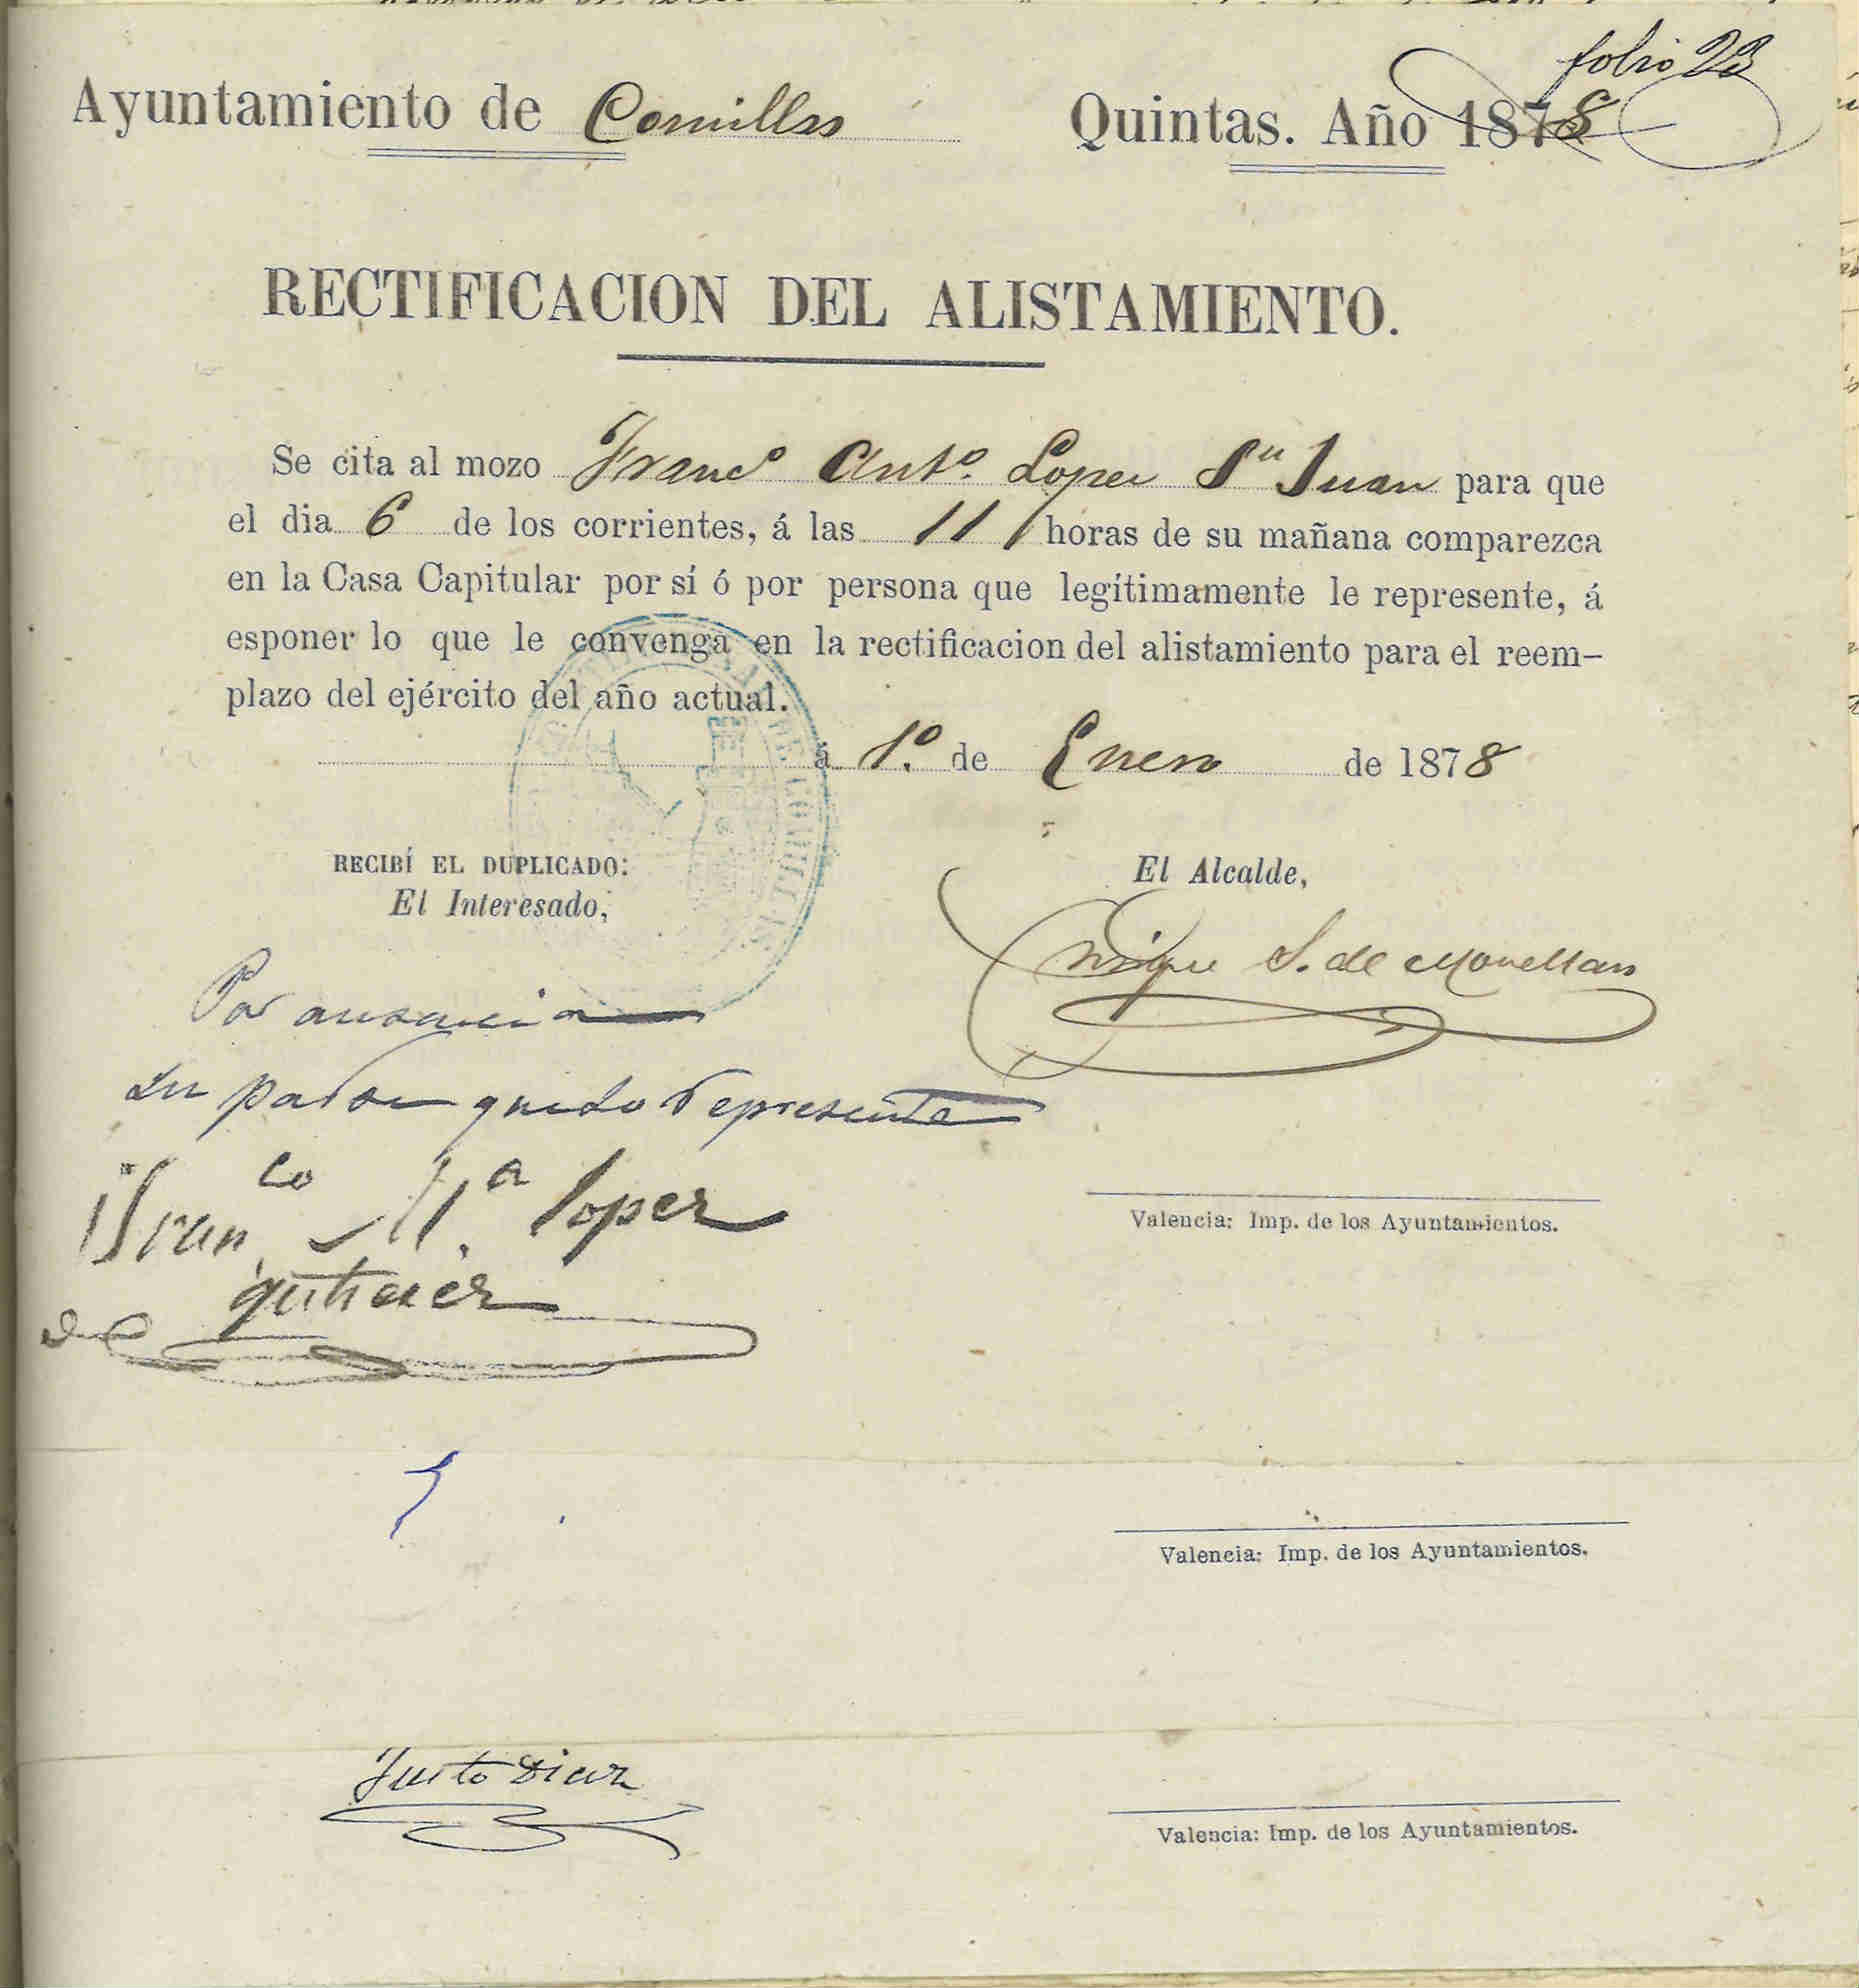 folio 23
Ayuntamiento de Comillas Quintas. Año 1878
RECTIFICACION DEL ALISTAMIENTO.
Se cita al mozo Franco Anto. Lopez Sn Juan para que
el dia 6 de los corrientes, á las 11 horas de su mañana comparezca
en la Casa Capitular por sí ó por persona que legítimamente le represente, á
esponer lo que le convenga en la rectificacion del alistamiento para el reem-
plazo del ejército del año actual.
á 1.º de Enero de 1878
RECIBÍ EL DUPLICADO:
El Interesado,
El Alcalde,
Enrique S. de Movellan
Por ausencia
su padre
Franco Ma. lopez
gutierrez
Valencia: Imp. de los Ayuntamientos.
Valencia: Imp. de los Ayuntamientos.
Justo Diaz
Valencia: Imp. de los Ayuntamientos.